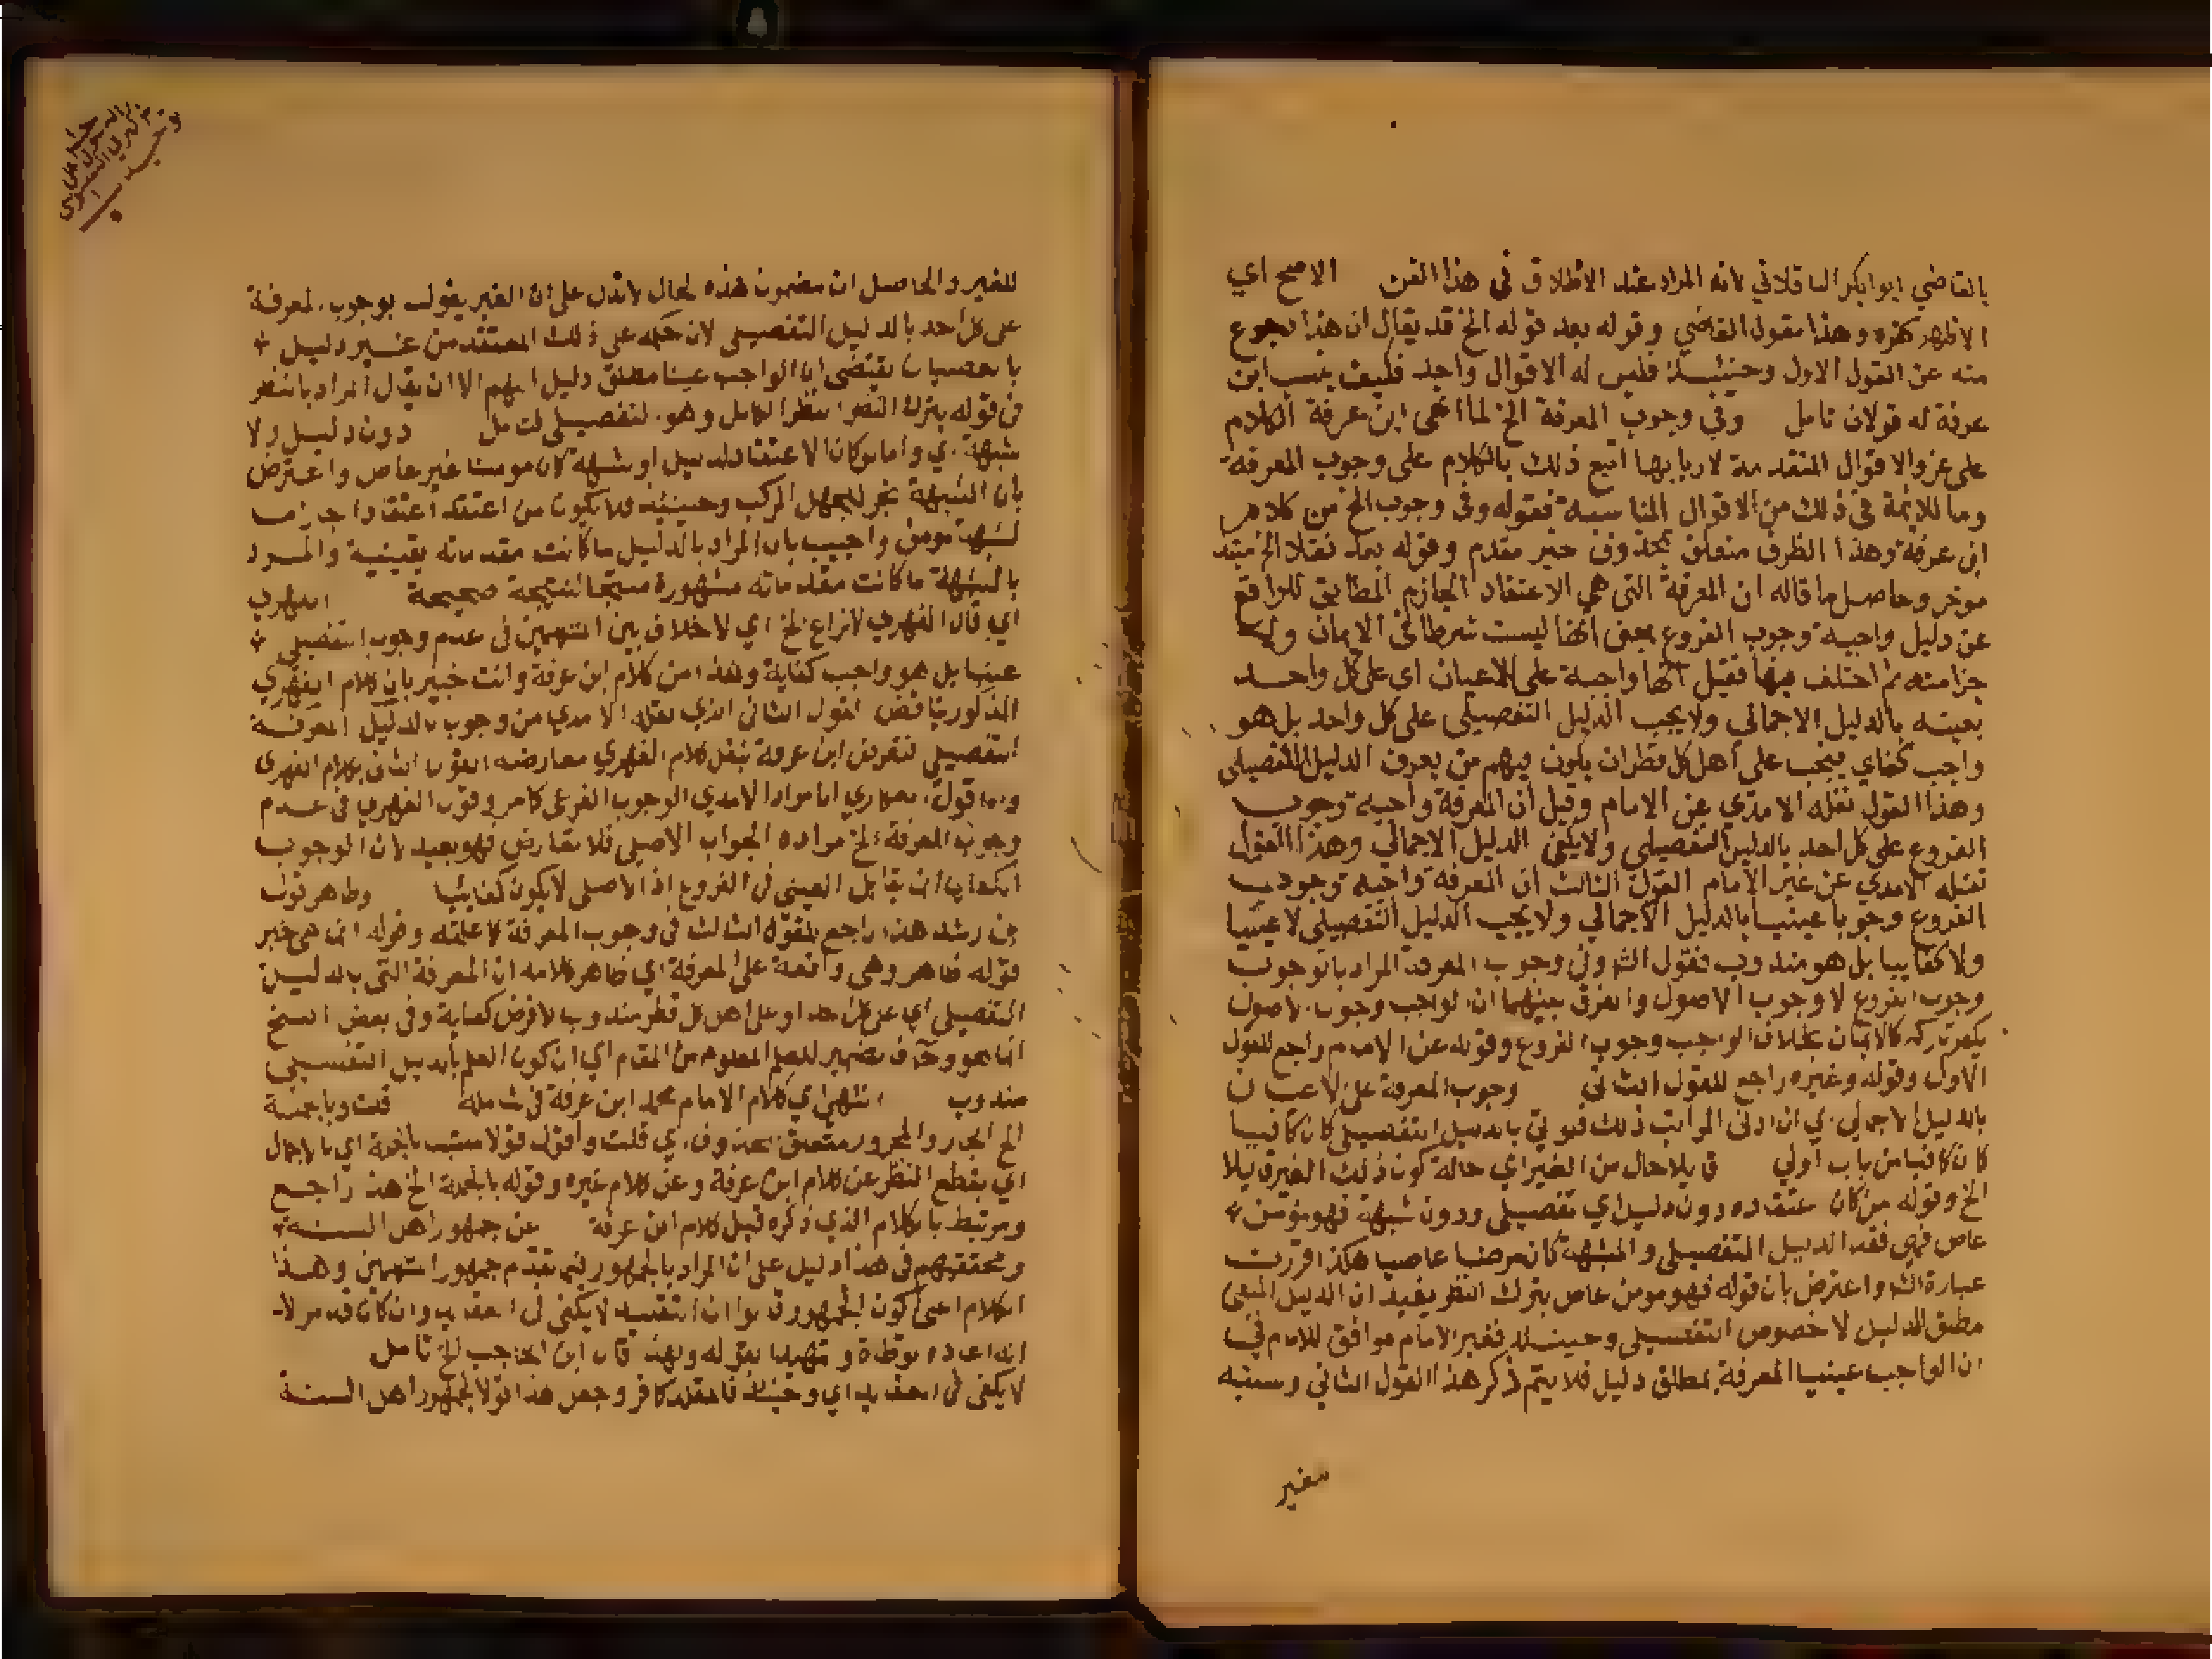 بالقاضي ابوابكر الباقلاني لانه المراد عند الاطلاق في هذا الفن الاصح اي
الاظهر كفره وهذا مقول القاضي وقوله بعد قوله الخ قد يقال ان هذا رجوع
منه عن القول الاول وحينئذ فليس له الا قوال واحد فكيف ينسب ابن
عرفة له قولان تامل وفي وجوب المعرفة الخ لما انهى ابن عرفة الكلام
على عزو الاقوال المتقدمة لاربابها اتبع ذلك بالكلام على وجوب المعرفة
وما للائمة في ذلك من الاقوال المناسبة فقوله وفي وجوب الخ من كلام
ابن عرفة وهذا الظرف متعلق بمحذوف خبر مقدم وقوله بعد نقلا الخ مبتد
موخر وحاصل ما قاله ان المعرفة التي هي الاعتقاد الجازم المطابق للواقع
عن دليل واجبة وجوب الفروع بمعنى انها ليست شرطا في الايمان ولا
جزا منه ثم اختلف فيها فقيل انها واجبة على الاعيان اي على كل واحد
بعينه بالدليل الاجمالي ولا يجب الدليل التفصيلي على كل واحد بل هو
واجب كفاي فيجب على اهل كل قطر ان يكون فيهم من يعرف الدليل التفصيلي
وهذا القول نقله الامدي عن الامام وقيل ان المعرفة واجبة وجوب
الفروع على كل احد بالدليل التفصيلي ولا يكفي الدليل الاجمالي وهذا القول
نقله الامدي عن غير الامام القول الثالث ان المعرفة واجبة وجوب
الفروع وجوبا عينيا بالدليل الاجمالي ولا يجب الدليل التفصيلي لا عينيا
ولا كفاييا بل هو مندوب فقول الش وفي وجوب المعرفة المراد بالوجوب
وجوب الفروع لا وجوب الاصول والفرق بينهما ان الواجب وجوب الاصول
يكفر تاركه كالايمان بخلاف الواجب وجوب الفروع وقوله عن الامام راجع للقول
الاول وقوله وغيره راجع للقول الثاني وجوب المعرفة على الاعيان
بالدليل الاجمالي اي ان ادنى المراتب ذلك فلو اتى بالدليل التفصيلي كان كافيا
كان كافيا من باب اولي قايلا حال من الغير اي حالة كون ذلك الغير قايلا
الخ وقوله من كان عتقاده دون دليل اي تفصيلي ودون شبهة فهو مؤمن
عاص فمتى فقد الدليل التفصيلي والشبهة كان مومنا عاصيا هكذا قررت
عبارة الش واعترض بان قوله فهو مومن عاص بترك النظر يفيد ان الدليل المنفي
مطلق الدليل لا خصوص التفصيلي وحينئذ فغير الامام موافق للامام في
ان الواجب عينيا المعرفة بمطلق دليل فلا يتم ذكر هذا القول الثاني ونسبته
للغير
للغير والحاصل ان مضمون هذه الحال لا تدل على ان الغير يقول بوجوب المعرفة
على كل احد بالدليل التفصيلي لان حكمه على ذلك المعتقد من غير دليل
بالعصيان يقتضي ان الواجب عينا مطلق دليل اللهم الا ان يقال المراد بالنظر
في قوله بترك النظر النظر الكامل وهو التفصيلي تامل دون دليل ولا
شبهة اي واما لو كان الاعتقاد لدليل او شبهة كان مومنا غير عاص واعترض
بان الشبهة تجر للجهل المركب وحينئذ فلا يكون من اعتقد اعتقادا جازما
لشبهة مومن واجيب بان المراد بالدليل ما كانت مقدماته يقينية والمراد
بالشبهة ما كانت مقدماته مشهورة منتجا لنتيجة صحيحة الفهري
اي قال الفهري لا نزاع الخ اي لا خلاف بين المتكلمين في عدم وجوب التفصيلي
عينيا بل هو واجب كفاية وهذا من كلام ابن عرفة وانت خبير بان كلام الفهري
المذكور يناقض القول الثاني الذي نقله الامدي من وجوب الدليل المعرفة
التفصيلي فغرض ابن عرفة بنقل كلام الفهري معارضة القول الثاني بكلام الفهري
واما قول انما مراد الامدي الوجوب الفرعي كما مر وقول الفهري في عدم
وجوب المعرفة الخ مراده الجواب الاصلي فلا تعارض فهو بعيد لان الوجوب
الكفاي ان يقابل العيني في الفروع اذ الاصلي لا يكون كفائيا وظاهر قول
ابن رشد هذا راجع للقول الثالث في وجوب المعرفة كما علمته وقوله انما هي خبر
قوله ظاهر وهي واقعة على المعرفة اي ظاهر كلامه ان المعرفة التي بالدليل
التفصيلي اي على كل احد او على اهل كل قطر مندوب لا فرض كفاية وفي بعض النسخ
انما هو فالضمير للعلم المعلوم من المقام اي ان كون العلم بالدليل التفصيلي
مندوب انتهى اي كلام الامام محمد ابن عرفة في شامله قلت وبالجملة
الخ الجار والمجرور متعلق بمحذوف اي قلت واقول قولا ملتبس بالجملة اي بالاجمال
اي بقطع النظر عن كلام ابن عرفة وعن كلام غيره وقوله بالجملة الخ هذا راجع
ومرتبط بالكلام الذي ذكره قبل كلام ابن عرفة عن جمهور اهل السنة
ومحققيهم في هذا دليل على ان المراد بالجمهور فيما تقدم جمهور المتكلمين وهذا
الكلام اعني كون الجمهور قالوا ان التقليد لا يكفي في العقايد وان كان قد مر لا
انه اعاده توطئة وتمهيدا بقوله ولهذا قال ابن الحاجب الخ تامل
لا يكفي في العقايد اي وحينئذ فالمقلد كافر وجعل هذا قولا لجمهور اهل السنة